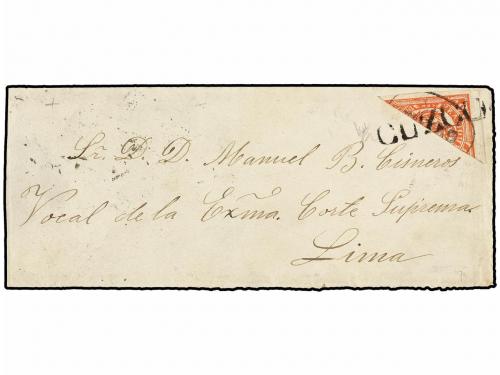 CUZCO
Sr. D. D. Manuel B. Cisneros
Vocal de la Exma. Corte Suprema.
Lima